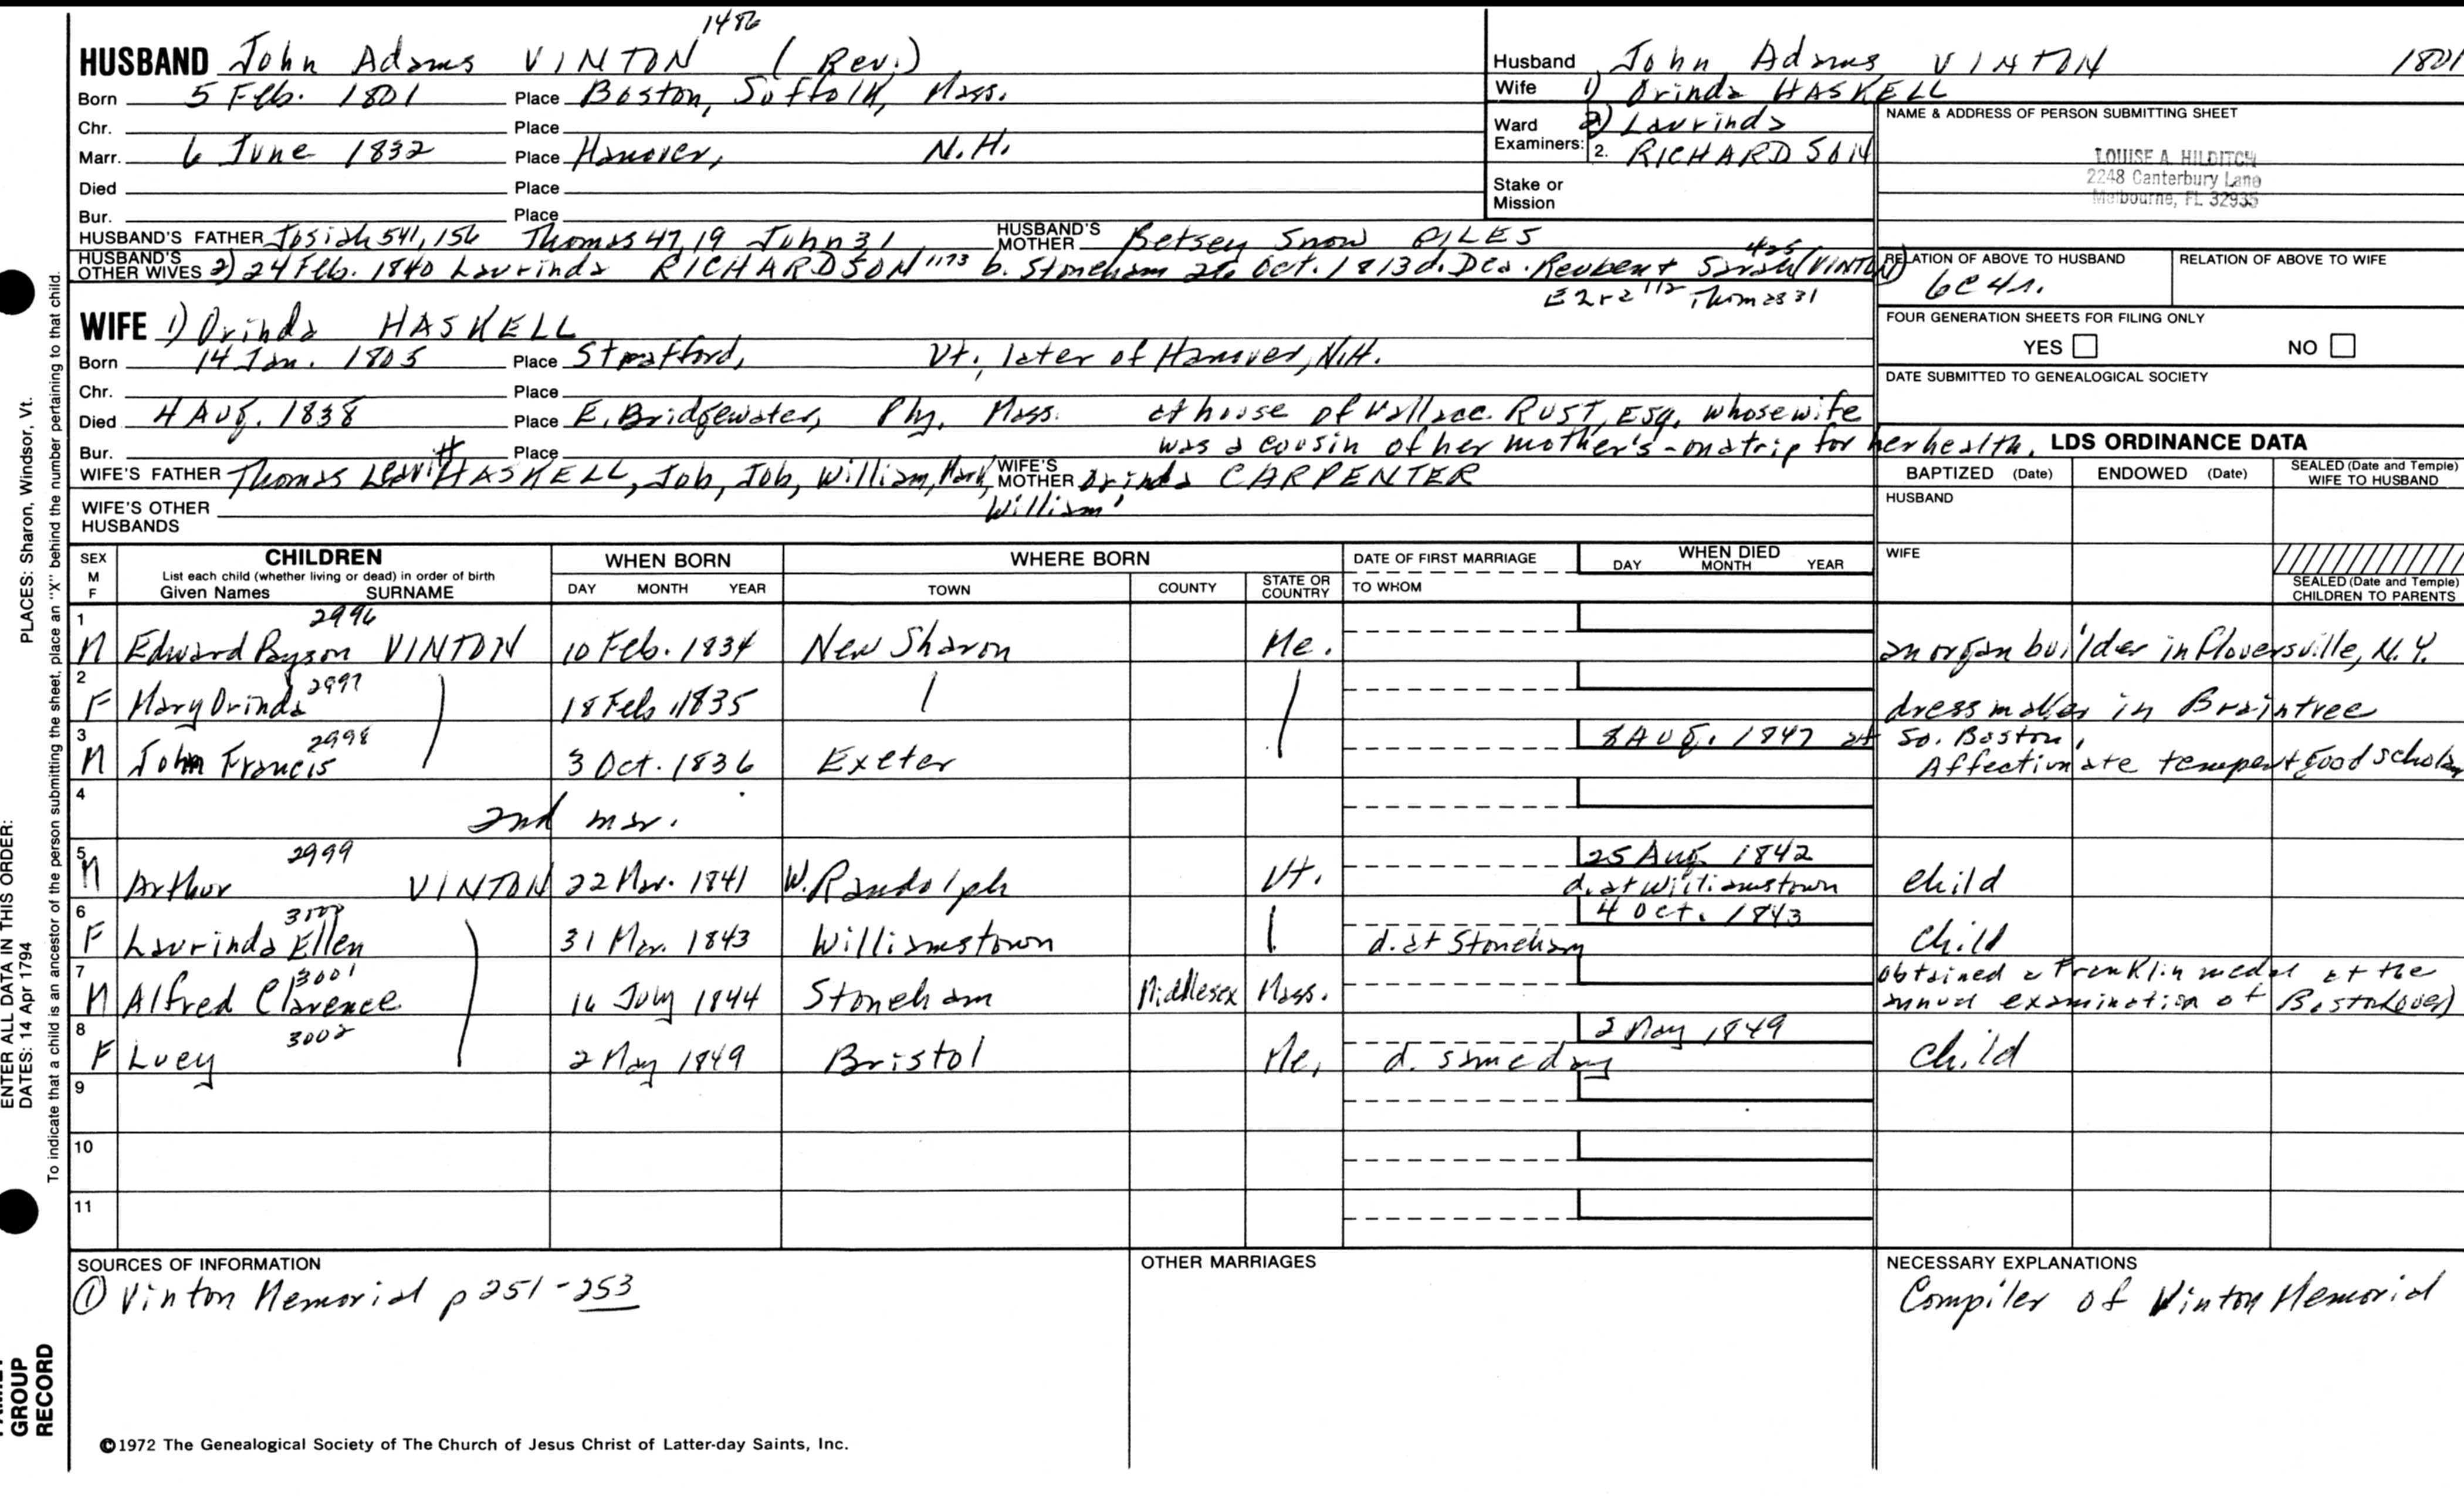 1486
HUSBAND John Adams VINTON (Rev.)
Born 5 Feb. 1801 Place Boston, Suffolk, Mass.
Chr. Place
Marr. 6 June 1832 Place Hanover, N.H.
Died Place
Bur. Place
HUSBAND'S FATHER Josiah 541, 156 Thomas 47, 19 John 31 HUSBAND'S MOTHER Betsey Snow GILES
HUSBAND'S OTHER WIVES 2) 24 Feb. 1840 Laurinda RICHARDSON 1173 b. Stoneham 26 Oct. 1813 d. Dea. Reuben + Sarah 425 (VINTON)
Ezra 112 Thomas 31
Husband John Adams VINTON 1801
Wife 1) Orinda HASKELL
Ward Examiners: 2) Laurinda
2. RICHARDSON
Stake or Mission
NAME & ADDRESS OF PERSON SUBMITTING SHEET
LOUISE A. HILDITCH
2248 Canterbury Lane
Melbourne, FL 32935
RELATION OF ABOVE TO HUSBAND RELATION OF ABOVE TO WIFE
6c4r.
FOUR GENERATION SHEETS FOR FILING ONLY
YES NO
DATE SUBMITTED TO GENEALOGICAL SOCIETY
WIFE 1) Orinda HASKELL
Born 14 Jan. 1805 Place Strafford, Vt., later of Hanover, N.H.
Chr. Place
Died 4 Aug. 1838 Place E. Bridgewater, Ply. Mass. at house of Wallace RUST, Esq. whose wife
Bur. Place was a cousin of her mother's - on a trip for her health.
WIFE'S FATHER Thomas Leavitt HASKELL, Job, Job, William, Mark, William WIFE'S MOTHER Orinda CARPENTER
WIFE'S OTHER HUSBANDS
LDS ORDINANCE DATA
BAPTIZED (Date) ENDOWED (Date) SEALED (Date and Temple) WIFE TO HUSBAND
HUSBAND
WIFE
SEALED (Date and Temple) CHILDREN TO PARENTS
SEX M F CHILDREN WHEN BORN WHERE BORN DATE OF FIRST MARRIAGE WHEN DIED
List each child (whether living or dead) in order of birth
Given Names SURNAME DAY MONTH YEAR TOWN COUNTY STATE OR COUNTRY TO WHOM DAY MONTH YEAR
1 M Edward Payson VINTON 2996 10 Feb. 1834 New Sharon Me. an organ builder in Gloversville, N.Y.
2 F Mary Orinda 2997 18 Feb 1835 dressmaker in Braintree
3 M John Francis 2998 3 Oct. 1836 Exeter 8 Aug. 1847 at So. Boston,
Affectionate temper + good scholar
4 2nd mar.
5 M Arthur VINTON 2999 22 Mar. 1841 W. Randolph Vt. 25 Aug 1842 d. at Williamstown child
6 F Laurinda Ellen 3000 31 Mar. 1843 Williamstown d. at Stoneham 4 Oct. 1843 child
7 M Alfred Clarence 3001 16 July 1844 Stoneham Middlesex Mass. obtained a Franklin medal at the
annual examination of Boston (over)
8 F Lucy 3002 2 May 1849 Bristol Me, d. same day 2 May 1849 child
9
10
11
SOURCES OF INFORMATION
① Vinton Memorial p 251-253
OTHER MARRIAGES
NECESSARY EXPLANATIONS
Compiler of Vinton Memorial
©1972 The Genealogical Society of The Church of Jesus Christ of Latter-day Saints, Inc.
ENTER ALL DATA IN THIS ORDER: PLACES: Sharon, Windsor, Vt.
DATES: 14 Apr 1794
To indicate that a child is an ancestor of the person submitting the sheet, place an "X" behind the number pertaining to that child.
GROUP
RECORD